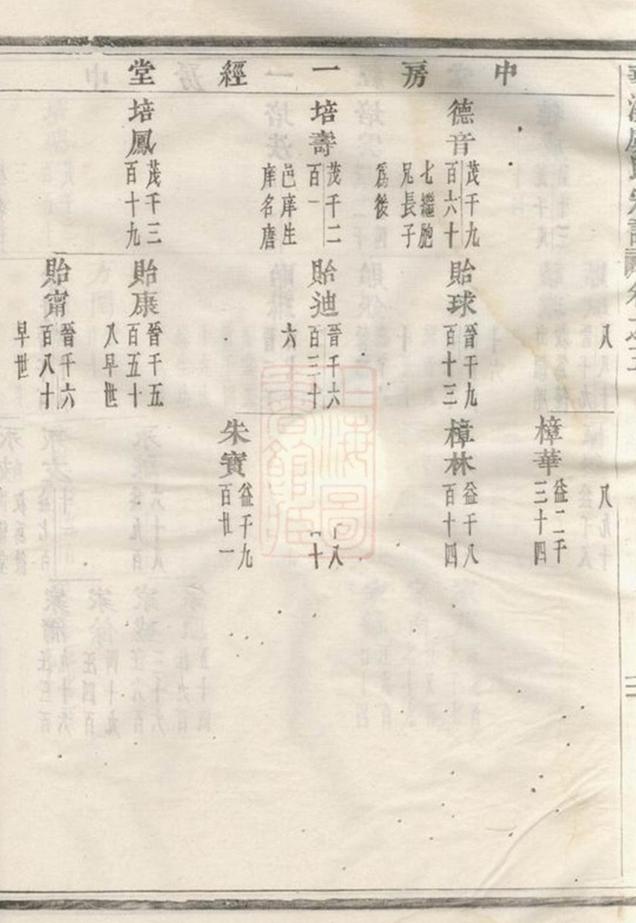 中房一經堂
八
八九十
樟華
益二千
三十四
德音
茂千九
百六十
七繼胞
兄長子
為後
貽球
晉千九
百十三
樟林
益千八
百十四
培壽
茂千二
百一
邑庠生
庠名唐
貽迪
晉千六
百三十
六
朱寶
益千九
百廿一
培鳳
茂千三
百十九
貽康
晉千五
百五十
八早世
貽甯
晉千六
百八十
早世